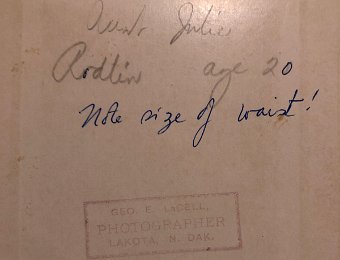 Aunt Julia
Rodlin age 20
Note size of waist!
GEO. E. LaBELL,
PHOTOGRAPHER
LAKOTA, N. DAK.